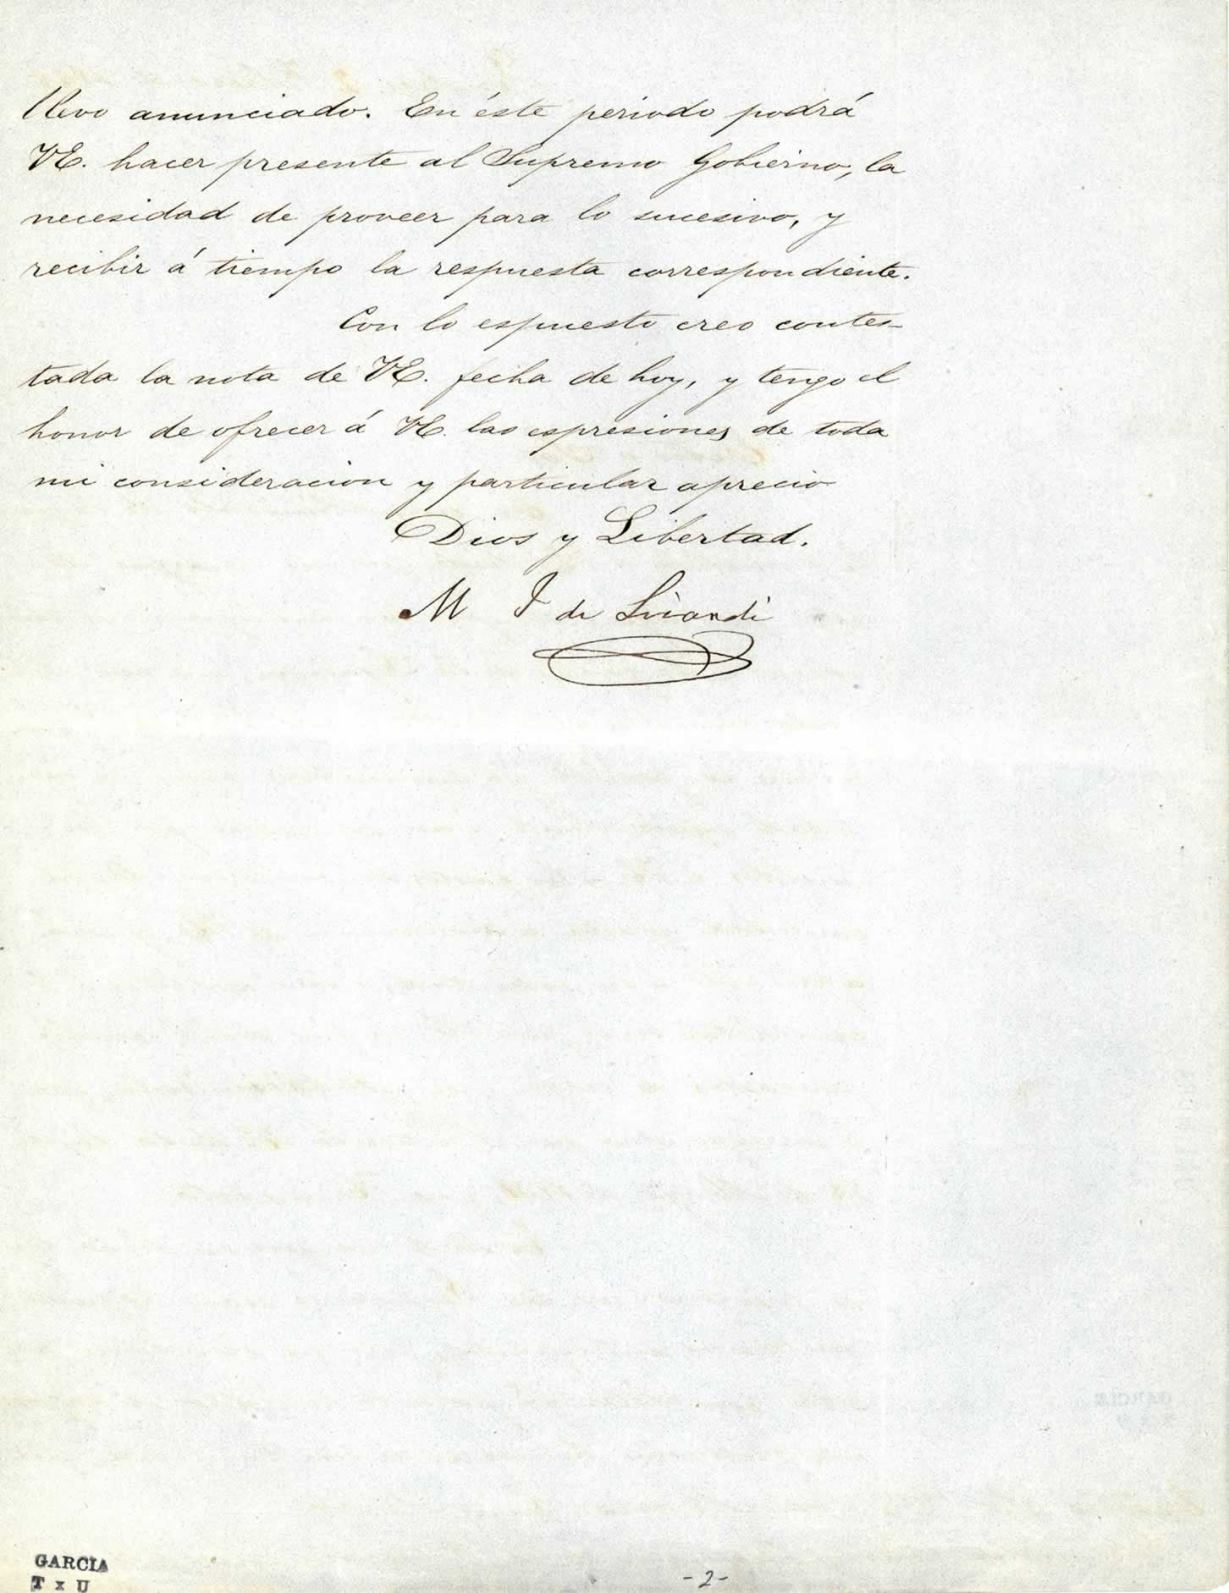 llevo anunciado. En éste periodo podrá
VE. hacer presente al Supremo Gobierno, la
necesidad de proveer para lo sucesivo, y
recibir á tiempo la respuesta correspondiente.
Con lo espuesto creo contes-
tada la nota de VE. fecha de hoy, y tengo el
honor de ofrecer á VE. las espresiones de toda
mi consideracion y particular aprecio
Dios y Libertad.
M J de Lizardi
GARCIA
T x U
-2-